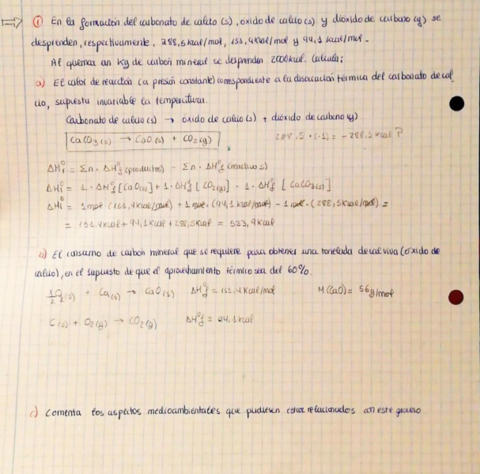 ① En la formación del carbonato de calcio (s), óxido de calcio (s) y dióxido de carbono (g) se
desprenden, respectivamente, 288,5 kcal/mol, 151,4 kcal/mol y 94,1 kcal/mol.
Al quemar un kg de carbón mineral se desprenden 2000 kcal. Calcula:
a) El calor de reacción (a presión constante) correspondiente a la disociación térmica del carbonato de cal
cio, supuesta invariable la temperatura.
Carbonato de calcio (s) → óxido de calcio (s) + dióxido de carbono (g)
CaCO3(s) → CaO(s) + CO2(g)
288,5 · (-1) = -288,5 kcal ?
ΔH°r = Σn · ΔH°f (productos) - Σn · ΔH°f (reactivos)
ΔH°r = 1 · ΔH°f [CaO(s)] + 1 · ΔH°f [CO2(g)] - 1 · ΔH°f [CaCO3(s)]
ΔH°r = 1 mol · (151,4 kcal/mol) + 1 mol · (94,1 kcal/mol) - 1 mol · (-288,5 kcal/mol) =
= 151,4 kcal + 94,1 kcal + 288,5 kcal = 533,9 kcal
b) El consumo de carbón mineral que se requiere para obtener una tonelada de cal viva (óxido de
calcio), en el supuesto de que el aprovechamiento térmico sea del 60%.
½O2(g) + Ca(s) → CaO(s) ΔH°f = 151,4 kcal/mol M(CaO) = 56 g/mol
C(s) + O2(g) → CO2(g) ΔH°f = 94,1 kcal
c) Comenta los aspectos medioambientales que pudiesen estar relacionados con este proceso